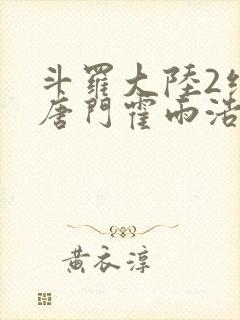 斗羅大陸2
唐門霍雨浩
黃衣淳